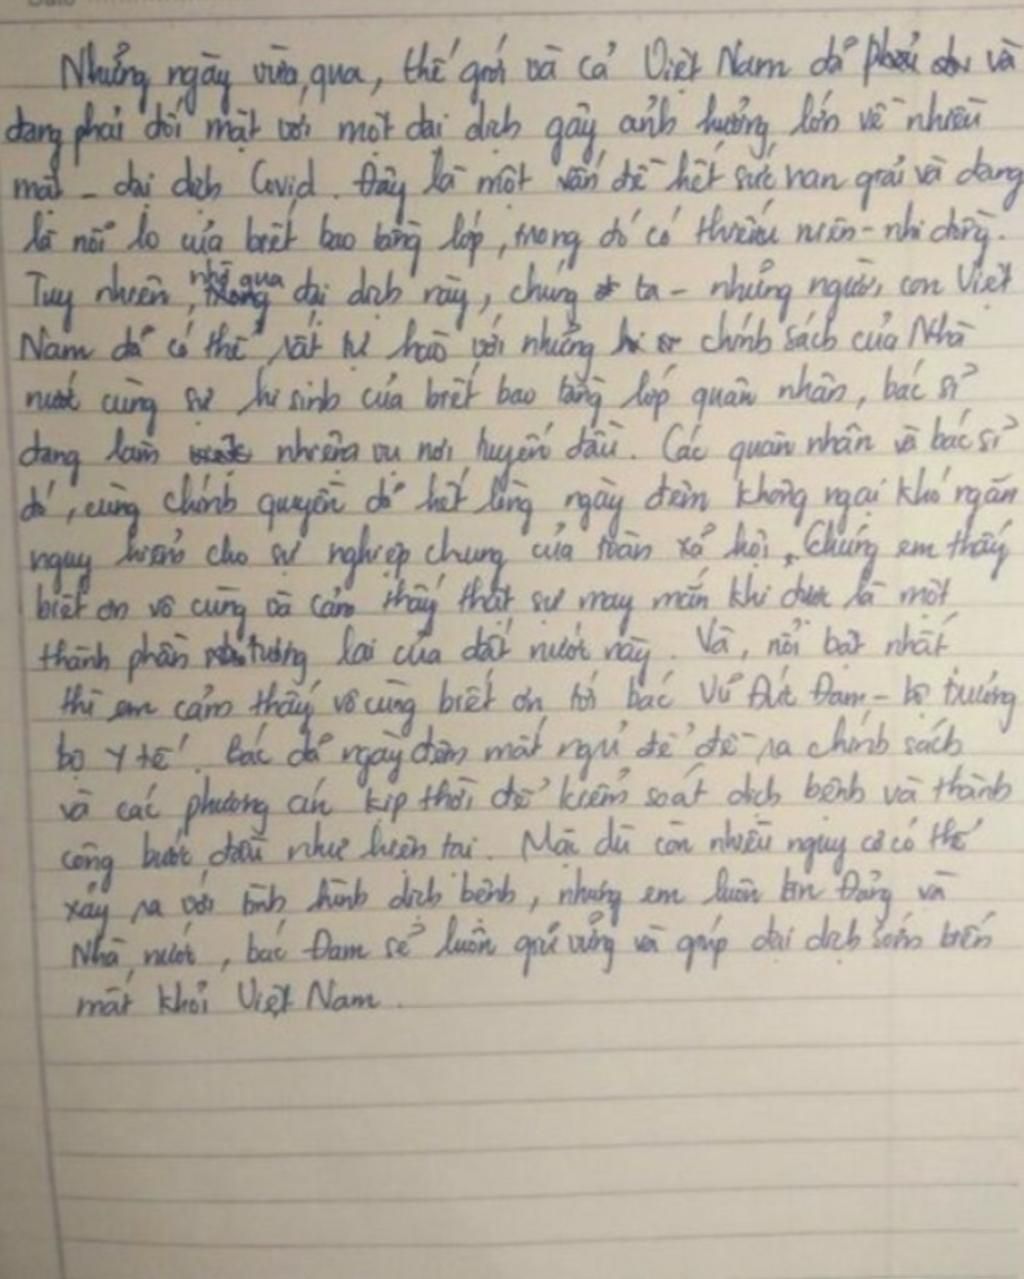 Những ngày vừa qua, thế giới và cả Việt Nam đã phải và
đang phải đối mặt với một đại dịch gây ảnh hưởng lớn về nhiều
mặt - đại dịch Covid. Đây là một vấn đề hết sức nan giải và đang
là nỗi lo của biết bao tầng lớp, trong đó có thiếu niên - nhi đồng.
Tuy nhiên, nhờ qua đại dịch này, chúng ta - những người con Việt
Nam đã có thể rất tự hào với những chính sách của Nhà
nước cùng sự hi sinh của biết bao tầng lớp quân nhân, bác sĩ
đang làm nhiệm vụ nơi tuyến đầu. Các quân nhân và bác sĩ
đó, cùng chính quyền đã hết lòng ngày đêm không ngại khó ngăn
nguy hiểm cho sự nghiệp chung của toàn xã hội. Chúng em thấy
biết ơn vô cùng và cảm thấy thật sự may mắn khi được là một
thành phần tương lai của đất nước này. Và, nổi bật nhất
thì em cảm thấy vô cùng biết ơn tới bác Vũ Đức Đam - bộ trưởng
bộ Y tế. Bác đã ngày đêm mất ngủ để đề ra chính sách
và các phương án kịp thời để kiểm soát dịch bệnh và thành
công bước đầu như hiện tại. Mặc dù còn nhiều nguy cơ có thể
xảy ra với tình hình dịch bệnh, nhưng em luôn tin Đảng và
Nhà nước, bác Đam sẽ luôn giữ vững và giúp đại dịch sớm biến
mất khỏi Việt Nam.